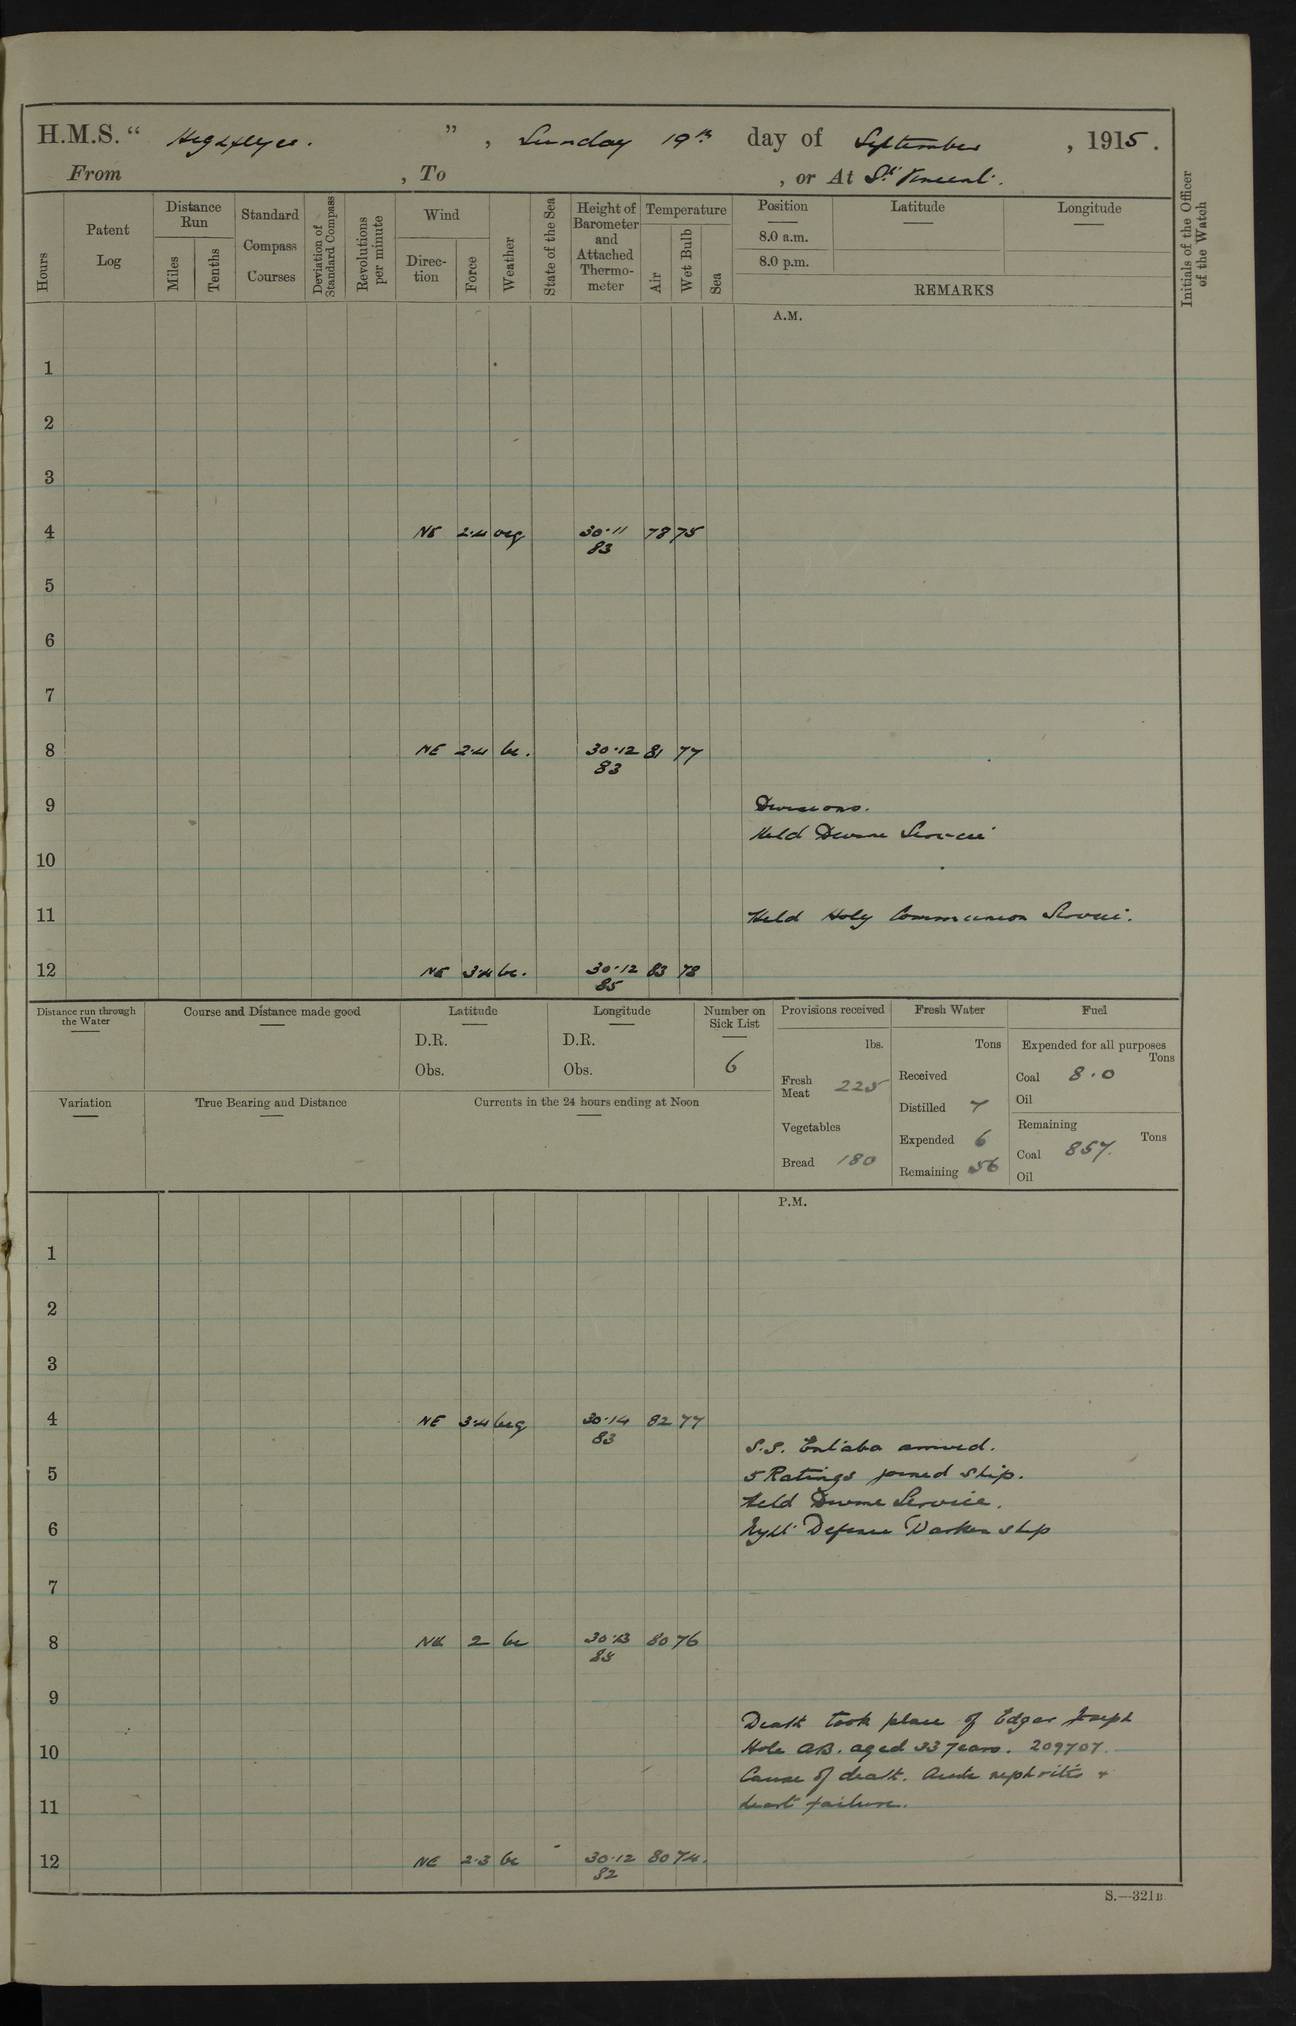 H.M.S. “ Highflyer. ” , Sunday 19th day of September , 1915 .
From , To , or At St Vincent.
Hours
Patent Log
Distance Run
Miles
Tenths
Standard Compass Courses
Deviation of Standard Compass
Revolutions per minute
Wind
Direc- tion
Force
Weather
State of the Sea
Height of Barometer and Attached Thermo- meter
Temperature
Air
Wet Bulb
Sea
Position Latitude Longitude
8.0 a.m.
8.0 p.m.
REMARKS
Initials of the Officer of the Watch
A.M.
1
2
3
4 NE 2.4 30.11 78 75
83
5
6
7
8 NE 2.4 bc. 30.12 81 77
83
9 Divisions.
Held Divine Service
10
11 Held Holy Communion Service.
12 NE 3.4 bc. 30.12 83 78
85
Distance run through the Water
Course and Distance made good
Latitude
D.R.
Obs.
Longitude
D.R.
Obs.
Number on Sick List
6
Provisions received
lbs.
Fresh Meat 225
Vegetables
Bread 180
Fresh Water
Tons
Received
Distilled 7
Expended 6
Remaining 56
Fuel
Expended for all purposes
Tons
Coal 8.0
Oil
Remaining
Tons
Coal 857.
Oil
Variation
True Bearing and Distance
Currents in the 24 hours ending at Noon
P.M.
1
2
3
4 NE 3.4 bcg 30.14 82 77
83
S.S. Entaba arrived.
5 5 Ratings joined ship.
Held Divine Service.
6 Defence Darken ship
7
8 NE 2 bc 30.13 80 76
9
Death took place of Edgar Joseph
10 Hole AB. aged 33 years. 209707.
Cause of death. Acute nephritis +
11 heart failure.
12 NE 2.3 bc 30.12 80 74.
82
S.—321B